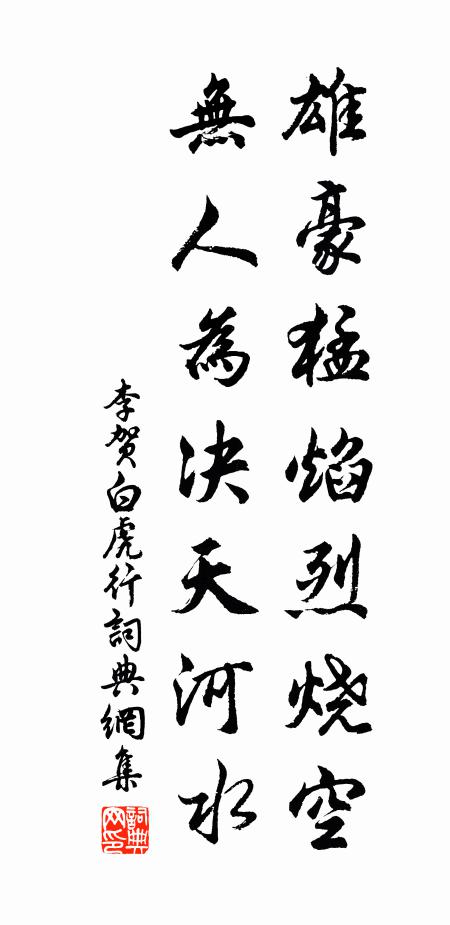 雄豪猛焰烈烧空
無人為决天河水
李贺白虎行詞典網集
詞典网印